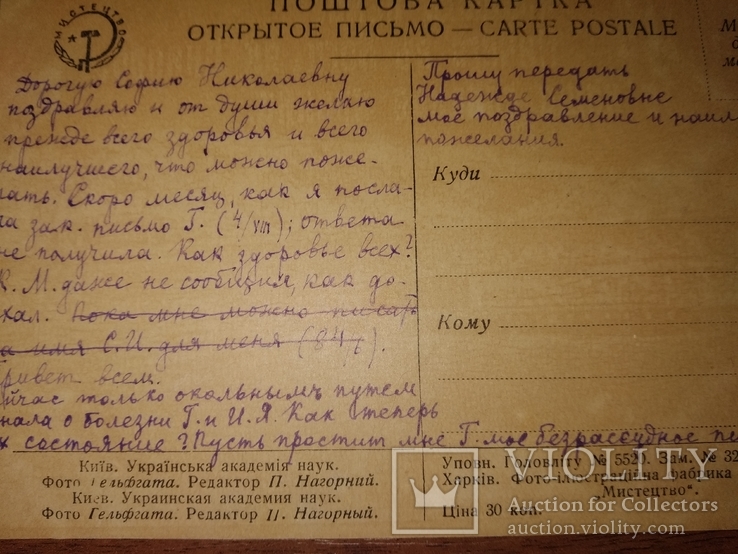 ПОШТОВА КАРТКА
ОТКРЫТОЕ ПИСЬМО — CARTE POSTALE
МИСТЕЦТВО
Дорогую Софию Николаевну
поздравляю и от души желаю
прежде всего здоровья и всего
наилучшего, что можно поже-
лать. Скоро месяц, как я посла-
ла зак. письмо Г. (4/VIII); ответа
не получила. Как здоровье всех?
К. М. даже не сообщил, как до-
ехал. Пока мне можно писать
на имя С. И. для меня (84
Привет всем.
Сейчас только окольным путем
узнала о болезни Г. и И. Я. Как теперь
их состояние? Пусть простит мне Г. мое безрассудное пи
Прошу передать
Надежде Семеновне
мое поздравление и наил
пожелания.
Куди
Кому
Київ. Українська академія наук.
Фото Гельфгата. Редактор П. Нагорний.
Киев. Украинская академия наук.
Фото Гельфгата. Редактор П. Нагорный.
Упозн. Головліту № 5520. Зам. № 32
Харків. Фото-ілюстраційна фабрика
"Мистецтво".
Ціна 30 коп.
VIOLITY
Auction for Collectors
auction.violity.com